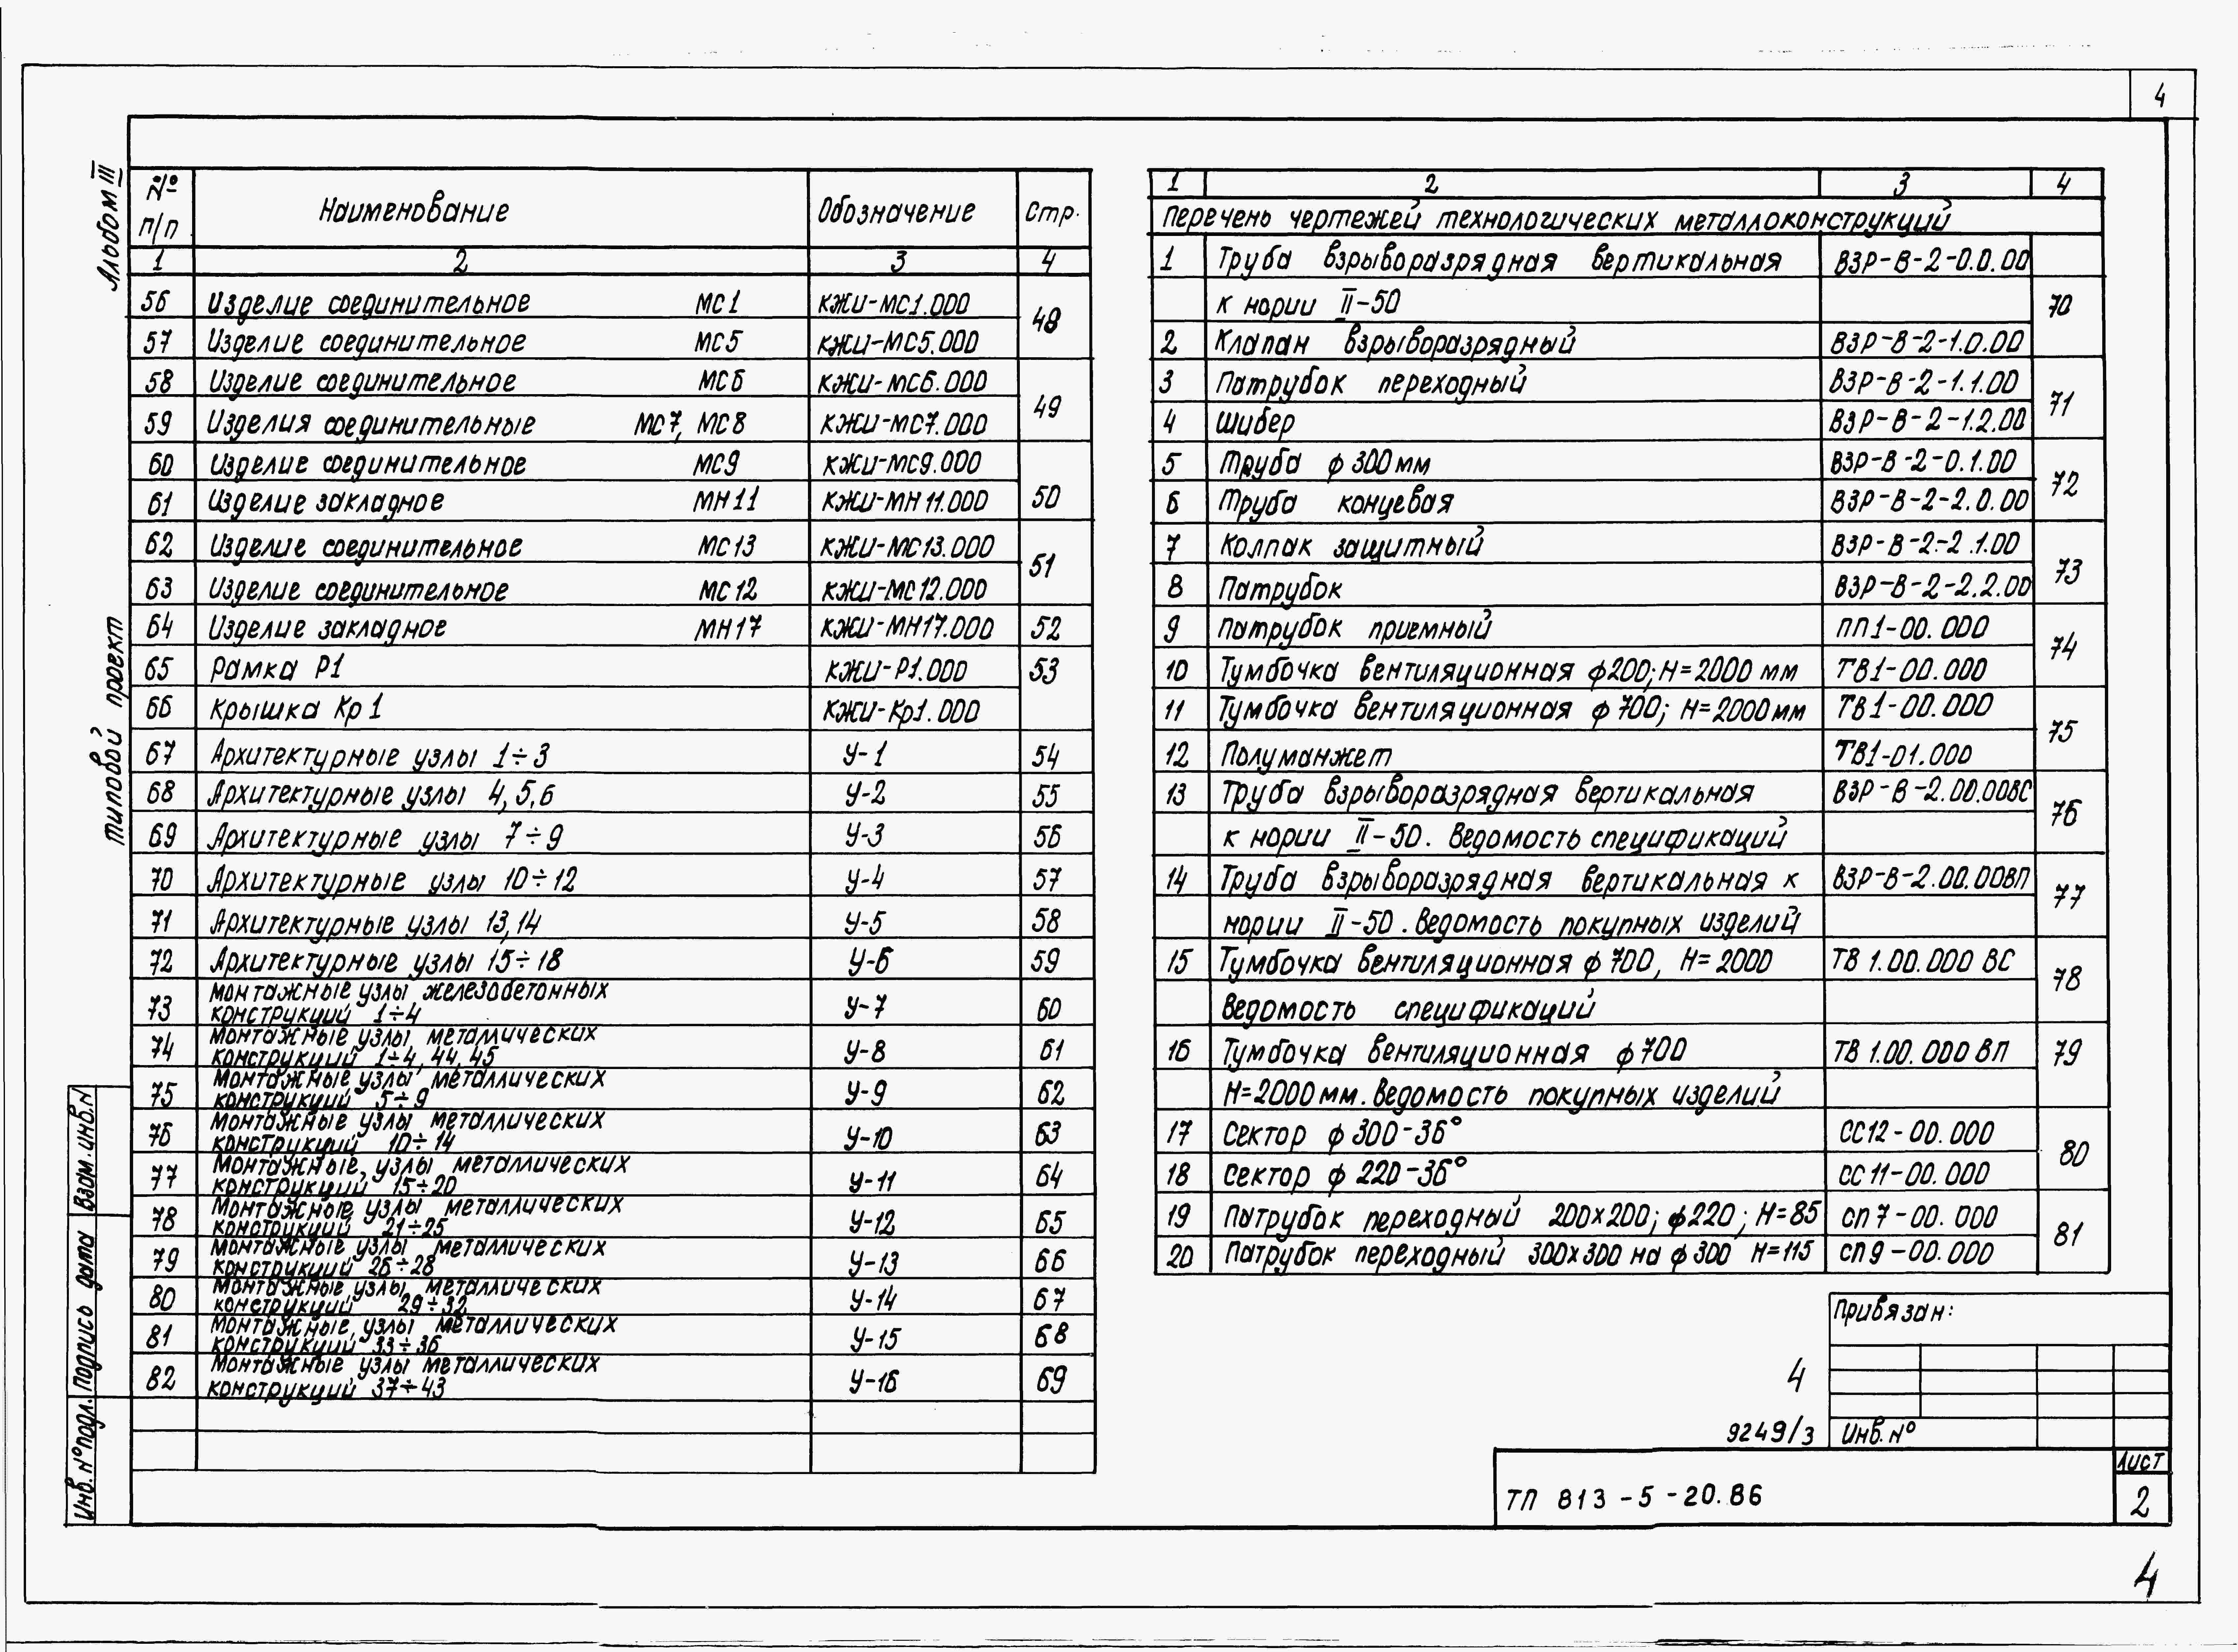 4
Альбом III
Типовой проект
№ п/п Наименование Обозначение Стр.
1 2 3 4
56 Изделие соединительное МС1 КЖИ-МС1.000 48
57 Изделие соединительное МС5 КЖИ-МС5.000
58 Изделие соединительное МС6 КЖИ-МС6.000 49
59 Изделия соединительные МС7, МС8 КЖИ-МС7.000
60 Изделие соединительное МС9 КЖИ-МС9.000 50
61 Изделие закладное МН11 КЖИ-МН11.000
62 Изделие соединительное МС13 КЖИ-МС13.000 51
63 Изделие соединительное МС12 КЖИ-МС12.000
64 Изделие закладное МН17 КЖИ-МН17.000 52
65 Рамка Р1 КЖИ-Р1.000 53
66 Крышка Кр1 КЖИ-Кр1.000
67 Архитектурные узлы 1÷3 У-1 54
68 Архитектурные узлы 4,5,6 У-2 55
69 Архитектурные узлы 7÷9 У-3 56
70 Архитектурные узлы 10÷12 У-4 57
71 Архитектурные узлы 13,14 У-5 58
72 Архитектурные узлы 15÷18 У-6 59
73 Монтажные узлы железобетонных
конструкций 1÷4 У-7 60
74 Монтажные узлы металлических
конструкций 1÷4, 44, 45 У-8 61
75 Монтажные узлы металлических
конструкций 5÷9 У-9 62
76 Монтажные узлы металлических
конструкций 10÷14 У-10 63
77 Монтажные узлы металлических
конструкций 15÷20 У-11 64
78 Монтажные узлы металлических
конструкций 21÷25 У-12 65
79 Монтажные узлы металлических
конструкций 26÷28 У-13 66
80 Монтажные узлы металлических
конструкций 29÷32 У-14 67
81 Монтажные узлы металлических
конструкций 33÷36 У-15 68
82 Монтажные узлы металлических
конструкций 37÷43 У-16 69
1 2 3 4
Перечень чертежей технологических металлоконструкций
1 Труба взрыворазрядная вертикальная ВЗР-В-2-0.0.00
к нории II-50 70
2 Клапан взрыворазрядный ВЗР-В-2-1.0.00
3 Патрубок переходный ВЗР-В-2-1.1.00 71
4 Шибер ВЗР-В-2-1.2.00
5 Труба ф300мм ВЗР-В-2-0.1.00 72
6 Труба концевая ВЗР-В-2-2.0.00
7 Колпак защитный ВЗР-В-2-2.1.00 73
8 Патрубок ВЗР-В-2-2.2.00
9 Патрубок приемный ПП1-00.000 74
10 Тумбочка вентиляционная ф200; Н=2000 мм ТВ1-00.000
11 Тумбочка вентиляционная ф700; Н=2000мм ТВ1-00.000 75
12 Полуманжет ТВ1-01.000
13 Труба взрыворазрядная вертикальная ВЗР-В-2.00.00ВС 76
к нории II-50. Ведомость спецификаций
14 Труба взрыворазрядная вертикальная к ВЗР-В-2.00.00ВП 77
нории II-50. Ведомость покупных изделий
15 Тумбочка вентиляционная ф700, Н=2000 ТВ 1.00.000 ВС 78
Ведомость спецификаций
16 Тумбочка вентиляционная ф700 ТВ 1.00.000 ВП 79
Н=2000мм. Ведомость покупных изделий
17 Сектор ф300-36° СС12-00.000 80
18 Сектор ф220-36° СС11-00.000
19 Патрубок переходный 200х200; ф220; Н=85 СП7-00.000 81
20 Патрубок переходный 300х300 на ф300 Н=115 СП9-00.000
Привязан:
4
9249/3 Инв. №
ТП 813-5-20.86
Лист
2
Взам. инв. №
Подпись дата
Инв. № подл.
4